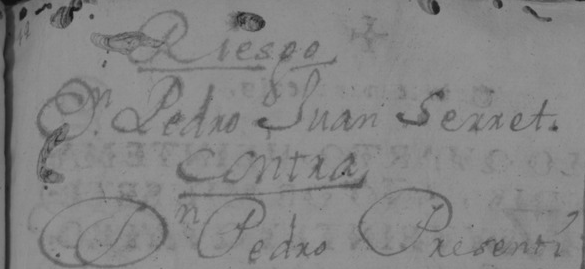 Riesgo
Dn. Pedro Juan Serret.
Contra
Dn Pedro Presenti